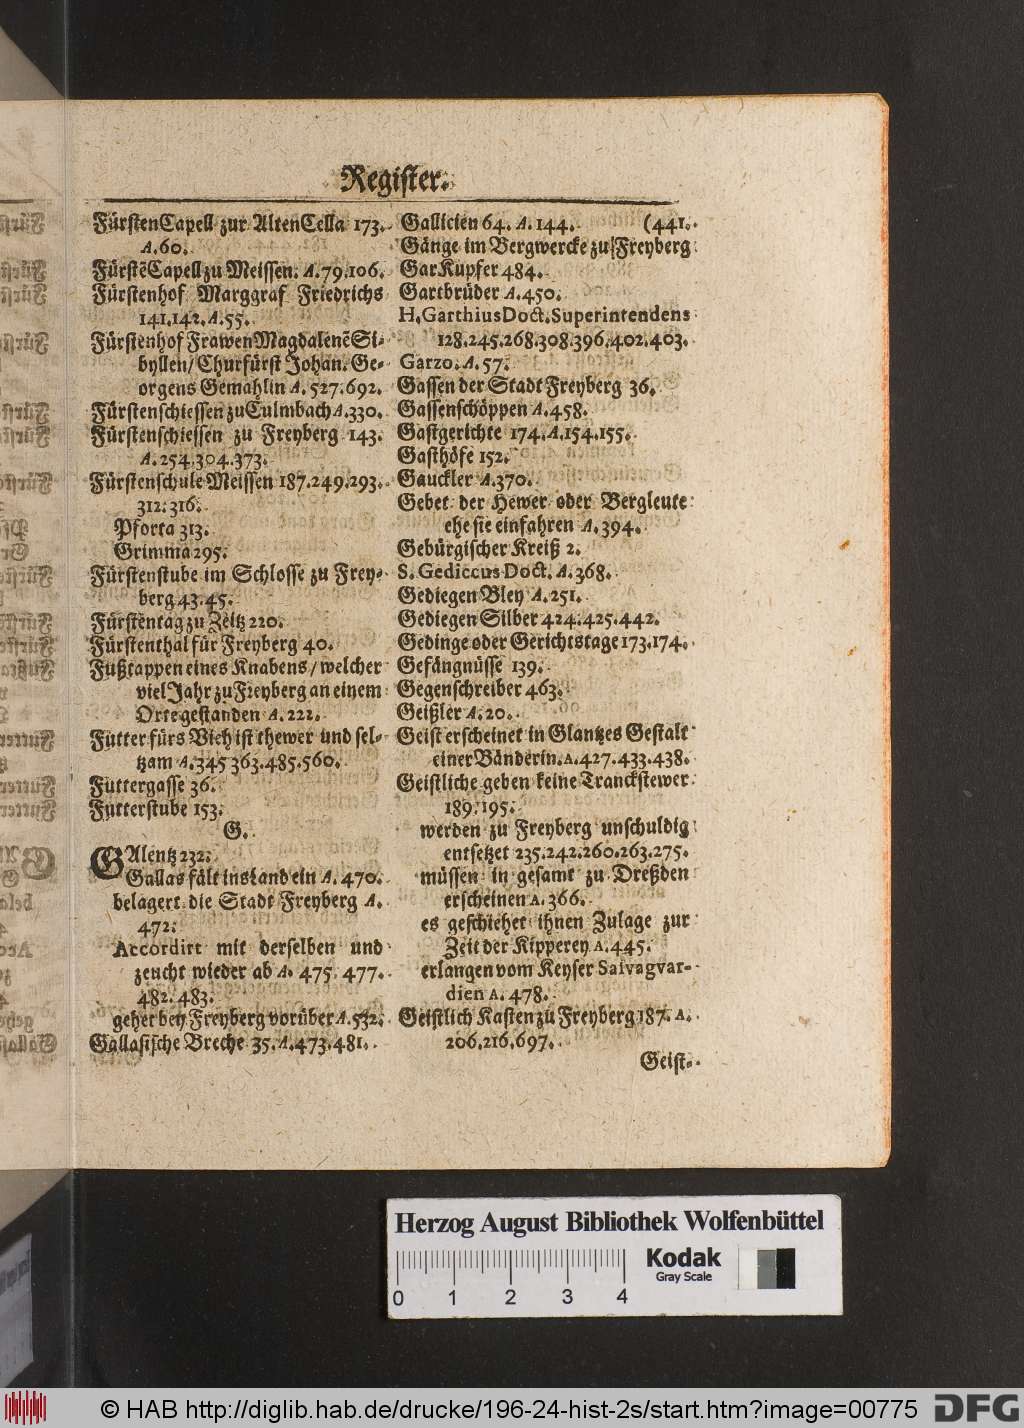 Register.
FürstenCapell zur AltenCella 173.
A.60.
FürstẽCapell zu Meissen. A.79.106.
Fürstenhof Marggraf Friedrichs
141.142. A.55.
Fürstenhof Frawen Magdalenẽ Si-
byllen/ Churfürst Johan. Ge-
orgens Gemahlin A. 527.692.
Fürstenschiessen zu Culmbach A.330.
Fürstenschiessen zu Freyberg 143.
A. 254.304.373.
Fürstenschule Meissen 187.249.293.
312.316.
Pforta 313.
Grimma 295.
Fürstenstube im Schlosse zu Frey-
berg 43.45.
Fürstentag zu Zeitz 220.
Fürstenthal für Freyberg 40.
Fußtappen eines Knabens/ welcher
viel Jahr zu Freyberg an einem
Orte gestanden A. 222.
Futter fürs Vieh ist thewer und sel-
tzam A.345 363.485.560.
Futtergasse 36.
Futterstube 153.
G.
GAlentz 232.
Gallas fält ins Land ein A. 470.
belagert die Stadt Freyberg A.
472.
Accordirt mit derselben und
zeucht wieder ab A. 475. 477.
482. 483.
gehet bey Freyberg vorüber A.532.
Gallasische Breche 35. A.473.481.
Gallicien 64. A. 144. (441.
Gänge im Bergwercke zu Freyberg
GarKupfer 484.
Gartbrüder A.450.
H. Garthius Doct. Superintendens
128.245.268.308.396.402.403.
Garzo. A. 57.
Gassen der Stadt Freyberg 36.
Gassenschöppen A.458.
Gastgerichte 174. A.154.155.
Gasthöfe 152.
Gauckler A.370.
Gebet der Hewer oder Bergleute
ehe sie einfahren A. 394.
Gebürgischer Kreiß 2.
S. Gediccus Doct. A.368.
Gediegen Bley A.251.
Gediegen Silber 424.425.442.
Gedinge oder Gerichtstage 173.174.
Gefängnüsse 139.
Gegenschreiber 463.
Geißler A.20.
Geist erscheinet in Glantzes Gestalt
einer Bänderin. A.427.433.438.
Geistliche geben keine Tranckstewer
189.195.
werden zu Freyberg unschuldig
entsetzet 235.242.260.263.275.
müssen in gesamt zu Dreßden
erscheinen A. 366.
es geschiehet ihnen Zulage zur
Zeit der Kipperey A.445.
erlangen vom Keyser Salvagvar-
dien A. 478.
Geistlich Kasten zu Freyberg 187. A.
206.216.697.
Geist-
Herzog August Bibliothek Wolfenbüttel
Kodak
Gray Scale
0 1 2 3 4
© HAB http://diglib.hab.de/drucke/196-24-hist-2s/start.htm?image=00775
DFG